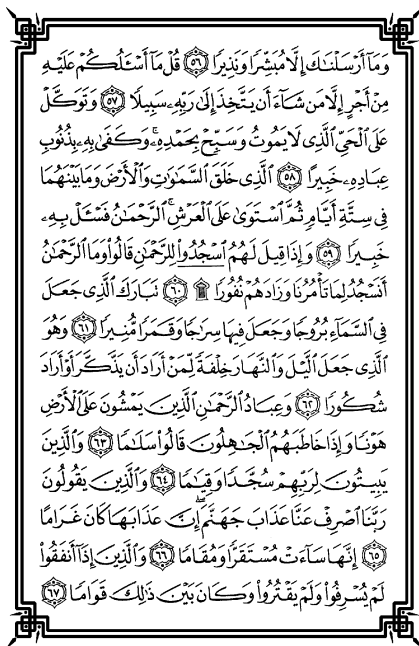 وَمَآ أَرۡسَلۡنَٰكَ إِلَّا مُبَشِّرٗا وَنَذِيرٗا ٥٦ قُلۡ مَآ أَسۡـَٔلُكُمۡ عَلَيۡهِ
مِنۡ أَجۡرٍ إِلَّا مَن شَآءَ أَن يَتَّخِذَ إِلَىٰ رَبِّهِۦ سَبِيلٗا ٥٧ وَتَوَكَّلۡ
عَلَى ٱلۡحَيِّ ٱلَّذِي لَا يَمُوتُ وَسَبِّحۡ بِحَمۡدِهِۦۚ وَكَفَىٰ بِهِۦ بِذُنُوبِ
عِبَادِهِۦ خَبِيرًا ٥٨ ٱلَّذِي خَلَقَ ٱلسَّمَٰوَٰتِ وَٱلۡأَرۡضَ وَمَا بَيۡنَهُمَا
فِي سِتَّةِ أَيَّامٖ ثُمَّ ٱسۡتَوَىٰ عَلَى ٱلۡعَرۡشِۚ ٱلرَّحۡمَٰنُ فَسۡـَٔلۡ بِهِۦ
خَبِيرٗا ٥٩ وَإِذَا قِيلَ لَهُمُ ٱسۡجُدُواْۤ لِلرَّحۡمَٰنِ قَالُواْ وَمَا ٱلرَّحۡمَٰنُ
أَنَسۡجُدُ لِمَا تَأۡمُرُنَا وَزَادَهُمۡ نُفُورٗا ٦٠ ۩ تَبَارَكَ ٱلَّذِي جَعَلَ
فِي ٱلسَّمَآءِ بُرُوجٗا وَجَعَلَ فِيهَا سِرَٰجٗا وَقَمَرٗا مُّنِيرٗا ٦١ وَهُوَ
ٱلَّذِي جَعَلَ ٱلَّيۡلَ وَٱلنَّهَارَ خِلۡفَةٗ لِّمَنۡ أَرَادَ أَن يَذَّكَّرَ أَوۡ أَرَادَ
شُكُورٗا ٦٢ وَعِبَادُ ٱلرَّحۡمَٰنِ ٱلَّذِينَ يَمۡشُونَ عَلَى ٱلۡأَرۡضِ
هَوۡنٗا وَإِذَا خَاطَبَهُمُ ٱلۡجَٰهِلُونَ قَالُواْ سَلَٰمٗا ٦٣ وَٱلَّذِينَ
يَبِيتُونَ لِرَبِّهِمۡ سُجَّدٗا وَقِيَٰمٗا ٦٤ وَٱلَّذِينَ يَقُولُونَ
رَبَّنَا ٱصۡرِفۡ عَنَّا عَذَابَ جَهَنَّمَۖ إِنَّ عَذَابَهَا كَانَ غَرَامًا
٦٥ إِنَّهَا سَآءَتۡ مُسۡتَقَرّٗا وَمُقَامٗا ٦٦ وَٱلَّذِينَ إِذَآ أَنفَقُواْ
لَمۡ يُسۡرِفُواْ وَلَمۡ يَقۡتُرُواْ وَكَانَ بَيۡنَ ذَٰلِكَ قَوَامٗا ٦٧